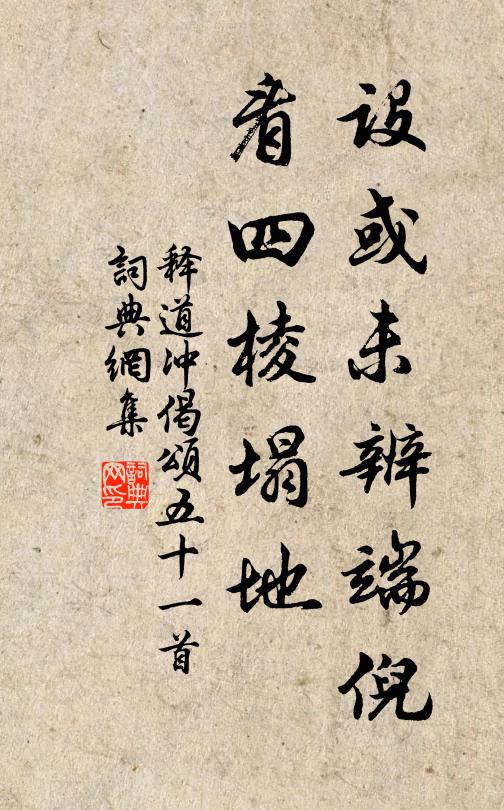 设或未辨端倪
看四棱塌地
释道冲偈頌五十一首
詞典網集
詞典網印